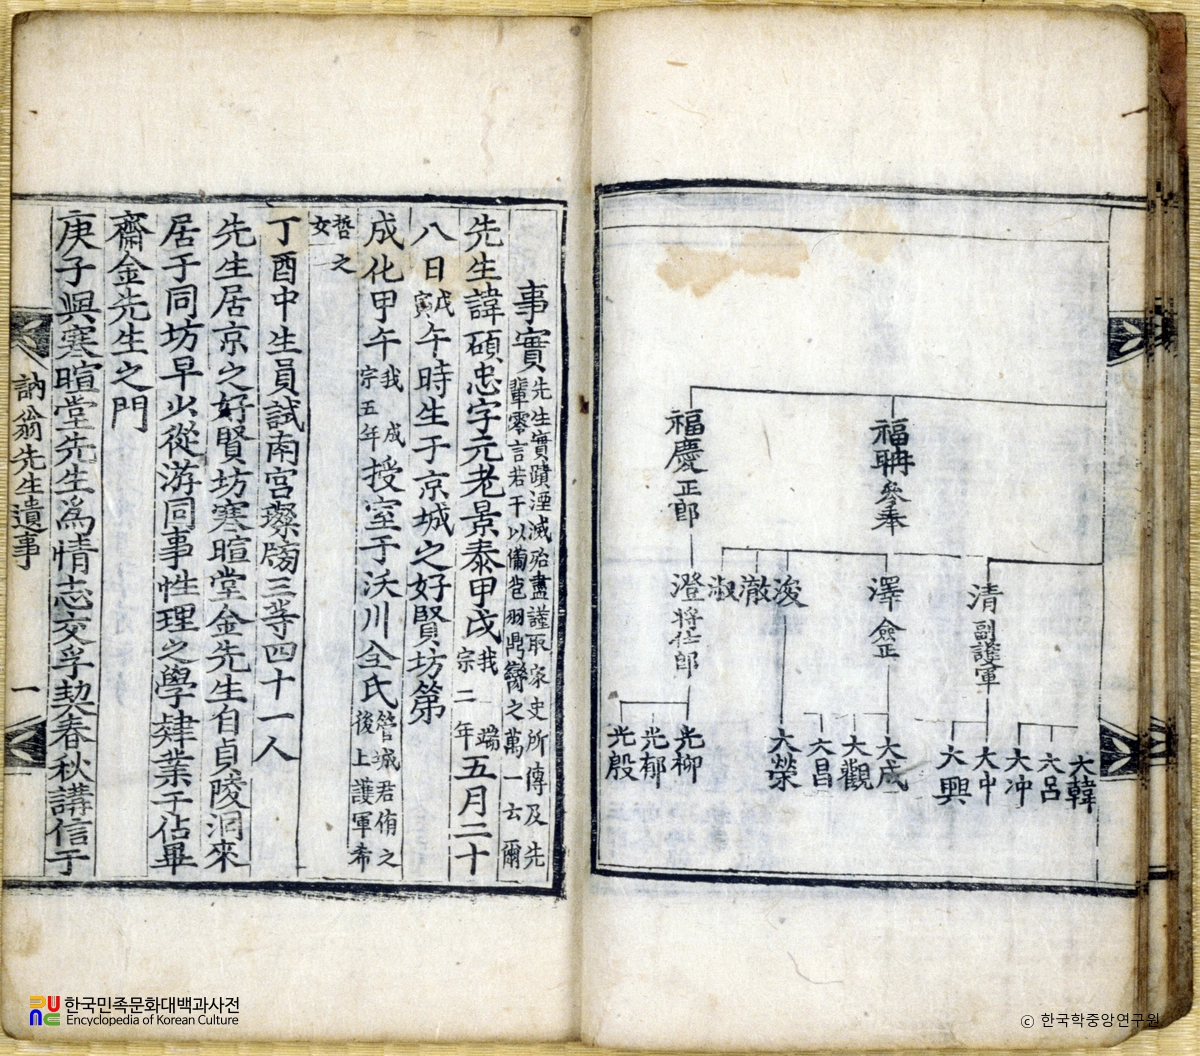 福聃 參奉
福慶 正郎
清 副護軍
澤 僉正
浚
澈
淑
澄 將仕郎
大韓
大呂
大冲
大中
大興
大成
大觀
大昌
大榮
光柳
光郁
光殷
事實 先生實蹟湮滅殆盡謹取家史所傳及先輩零言若干以備苞羽鼎臠之萬一云爾
先生諱碩忠字元老景泰甲戌我端宗二年五月二十
八日戊寅午時生于京城之好賢坊第
成化甲午我成宗五年授室于沃川全氏管城君侑之後上護軍希
哲之女
丁酉中生員試南宮璨牓三等四十一人
先生居京之好賢坊寒暄堂金先生自貞陵洞來
居于同坊早少從游同事性理之學肄業于佔畢
齋金先生之門
庚子與寒暄堂先生爲情志交孚契春秋講信于
訥翁先生遺事 一
한국민족문화대백과사전
Encyclopedia of Korean Culture
ⓒ 한국학중앙연구원